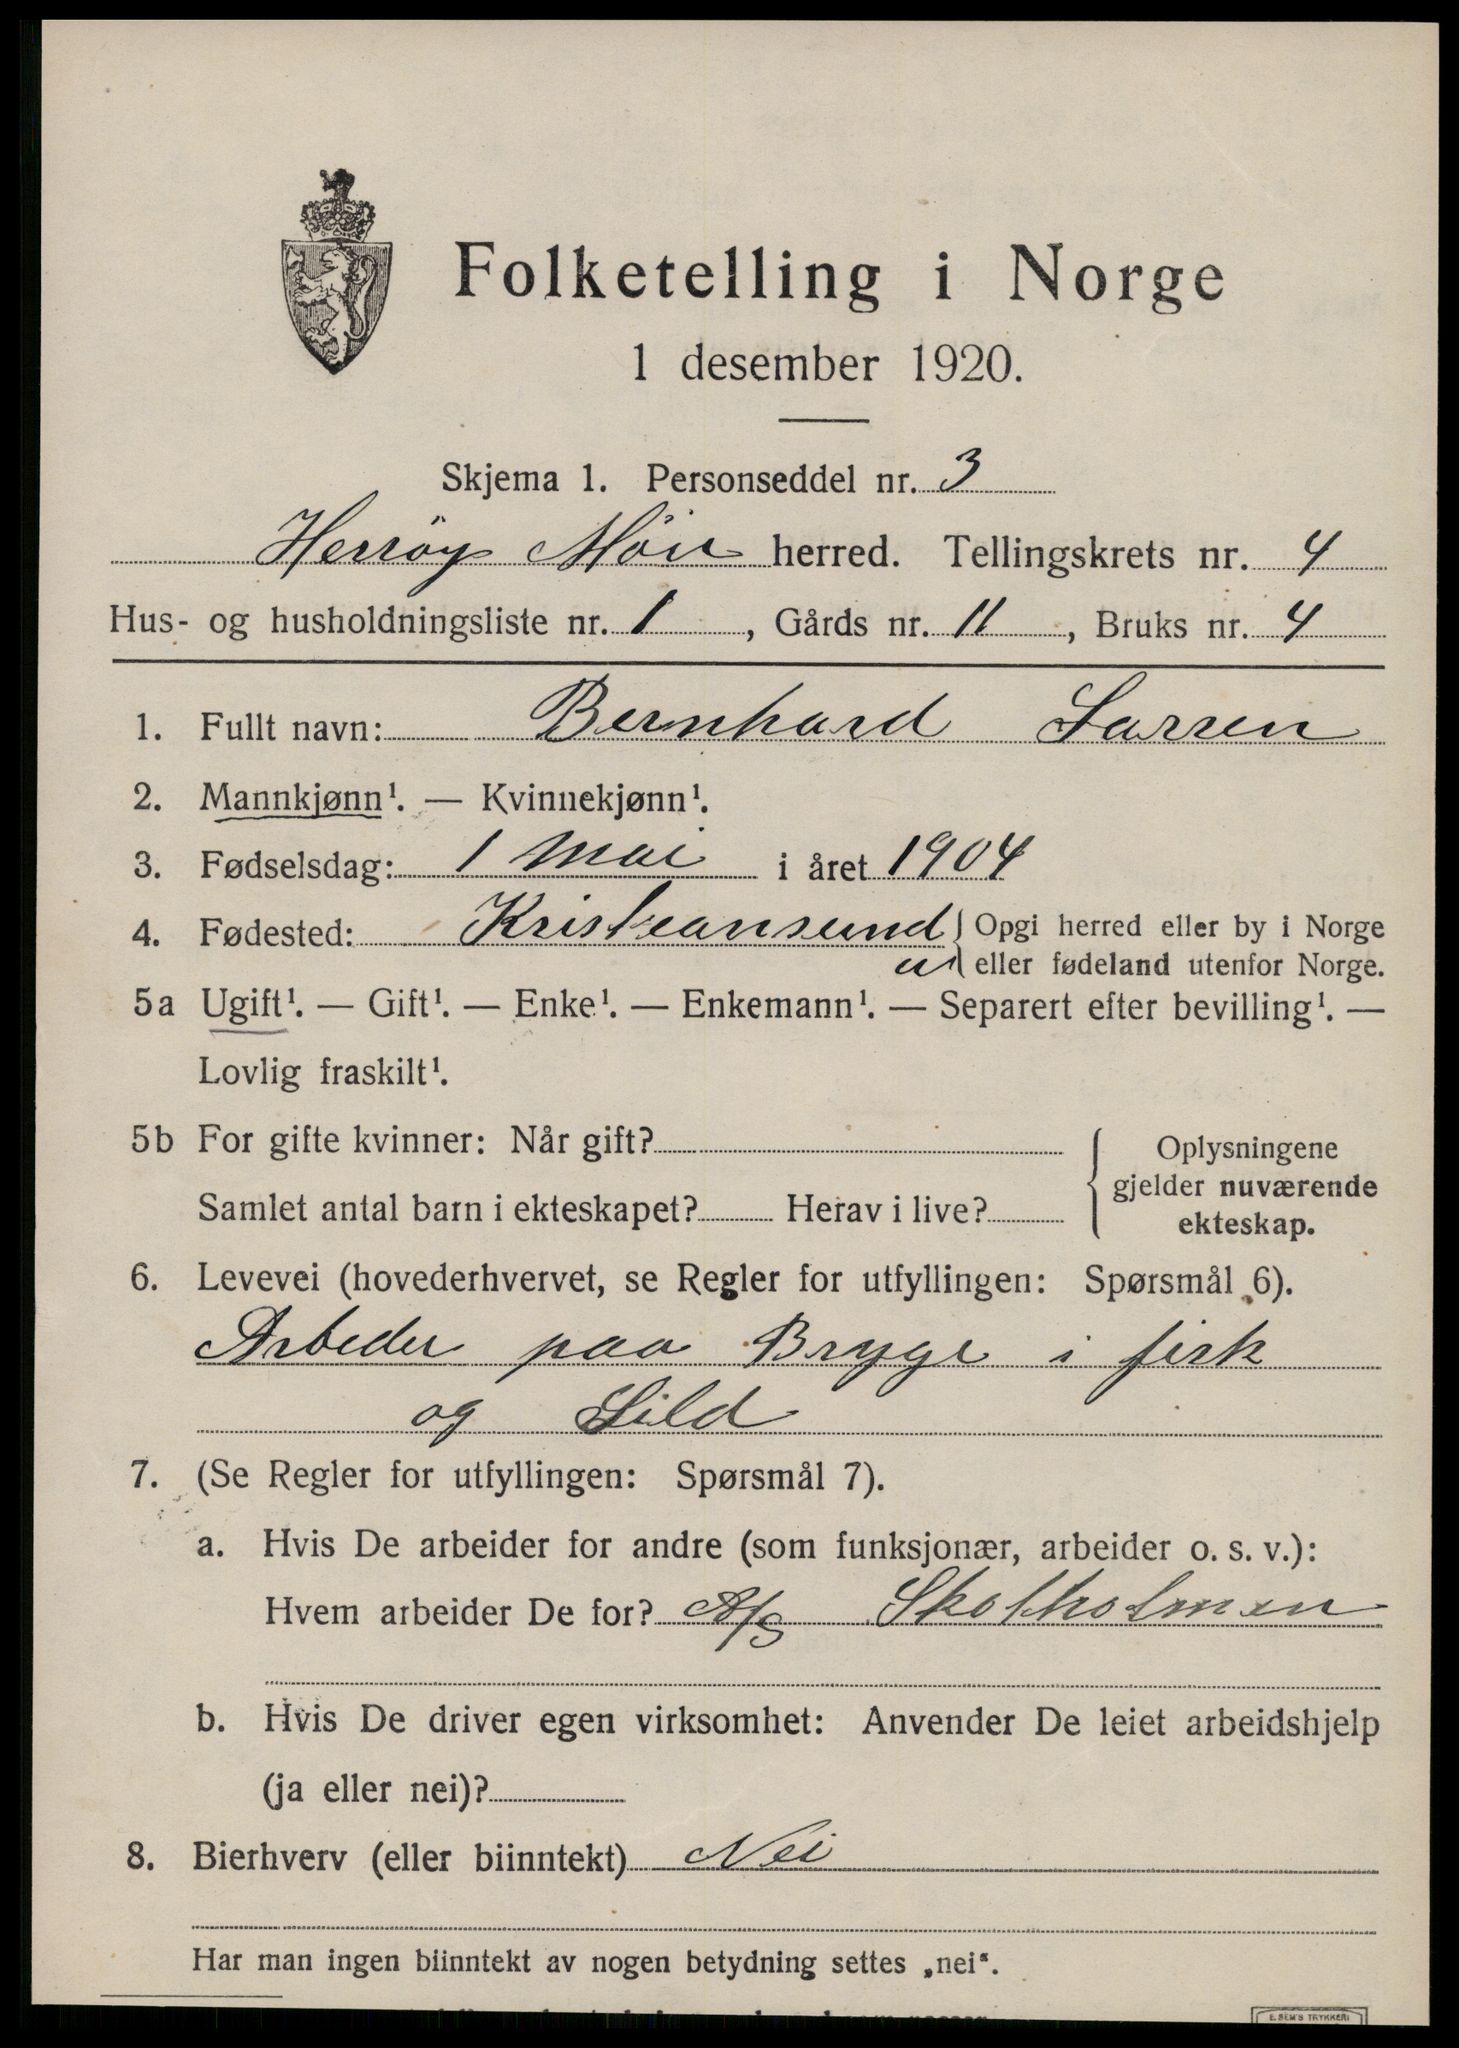 Folketelling i Norge
1 desember 1920.
Skjema 1. Personseddel nr. 3
Herröy Möre herred. Tellingskrets nr. 4
Hus- og husholdningsliste nr. 1, Gårds nr. 11, Bruks nr. 4
1. Fullt navn: Bernhard Larsen
2. Mannkjønn¹. — Kvinnekjønn¹.
3. Fødselsdag: 1 Mai i året 1904
4. Fødested: Kristiansund Opgi herred eller by i Norge
eller fødeland utenfor Norge.
5a Ugift¹. — Gift¹. — Enke¹. — Enkemann¹. — Separert efter bevilling¹. —
Lovlig fraskilt¹.
5b For gifte kvinner: Når gift?
Samlet antal barn i ekteskapet? Herav i live?
Oplysningene
gjelder nuværende
ekteskap.
6. Levevei (hovederhvervet, se Regler for utfyllingen: Spørsmål 6).
Arbeder paa Brygge i fisk
og Sild
7. (Se Regler for utfyllingen: Spørsmål 7).
a. Hvis De arbeider for andre (som funksjonær, arbeider o. s. v.):
Hvem arbeider De for? A/S Skotholmen
b. Hvis De driver egen virksomhet: Anvender De leiet arbeidshjelp
(ja eller nei)?
8. Bierhverv (eller biinntekt) Nei
Har man ingen biinntekt av nogen betydning settes „nei".
E. SEM'S TRYKKERI